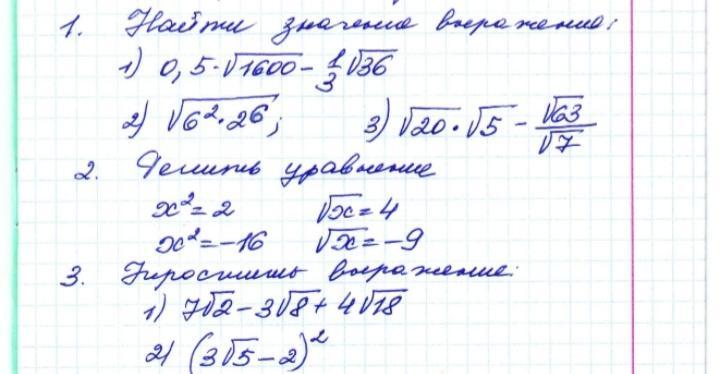 1. Найти значение выражение:
1) 0,5·√1600 - 1/3 √36
2) √(6²·26); 3) √20 · √5 - √63/√7
2. Решить уравнение
x² = 2 √x = 4
x² = -16 √x = -9
3. Упростить выражение:
1) 7√2 - 3√8 + 4√18
2) (3√5 - 2)²